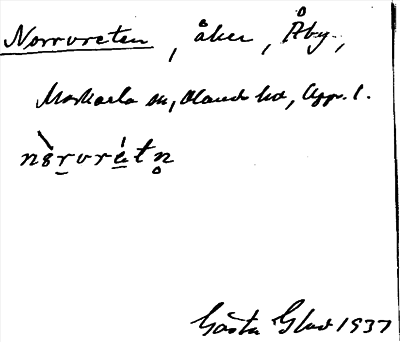 Norrvreten, åker, Åby,
Markarla sn, Olands hd, Upps. l.
nòrvrétn̥
Gösta Glad 1937